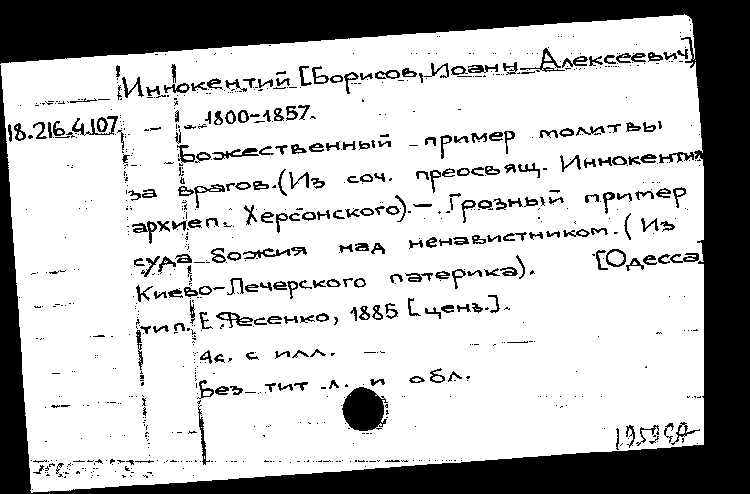 Иннокентий [Борисов, Иоанн Алексеевич]
18.216.4.107 1800-1857.
Божественный пример молитвы
за врагов. (Из соч. преосвящ. Иннокентия
архиеп. Херсонского). — Грозный пример
суда божия над ненавистником. (Из
Киево-Печерского патерика). [Одесса]
тип. Е. Фесенко, 1885 [ценз.].
4с. с илл.
Без тит. л. и обл.